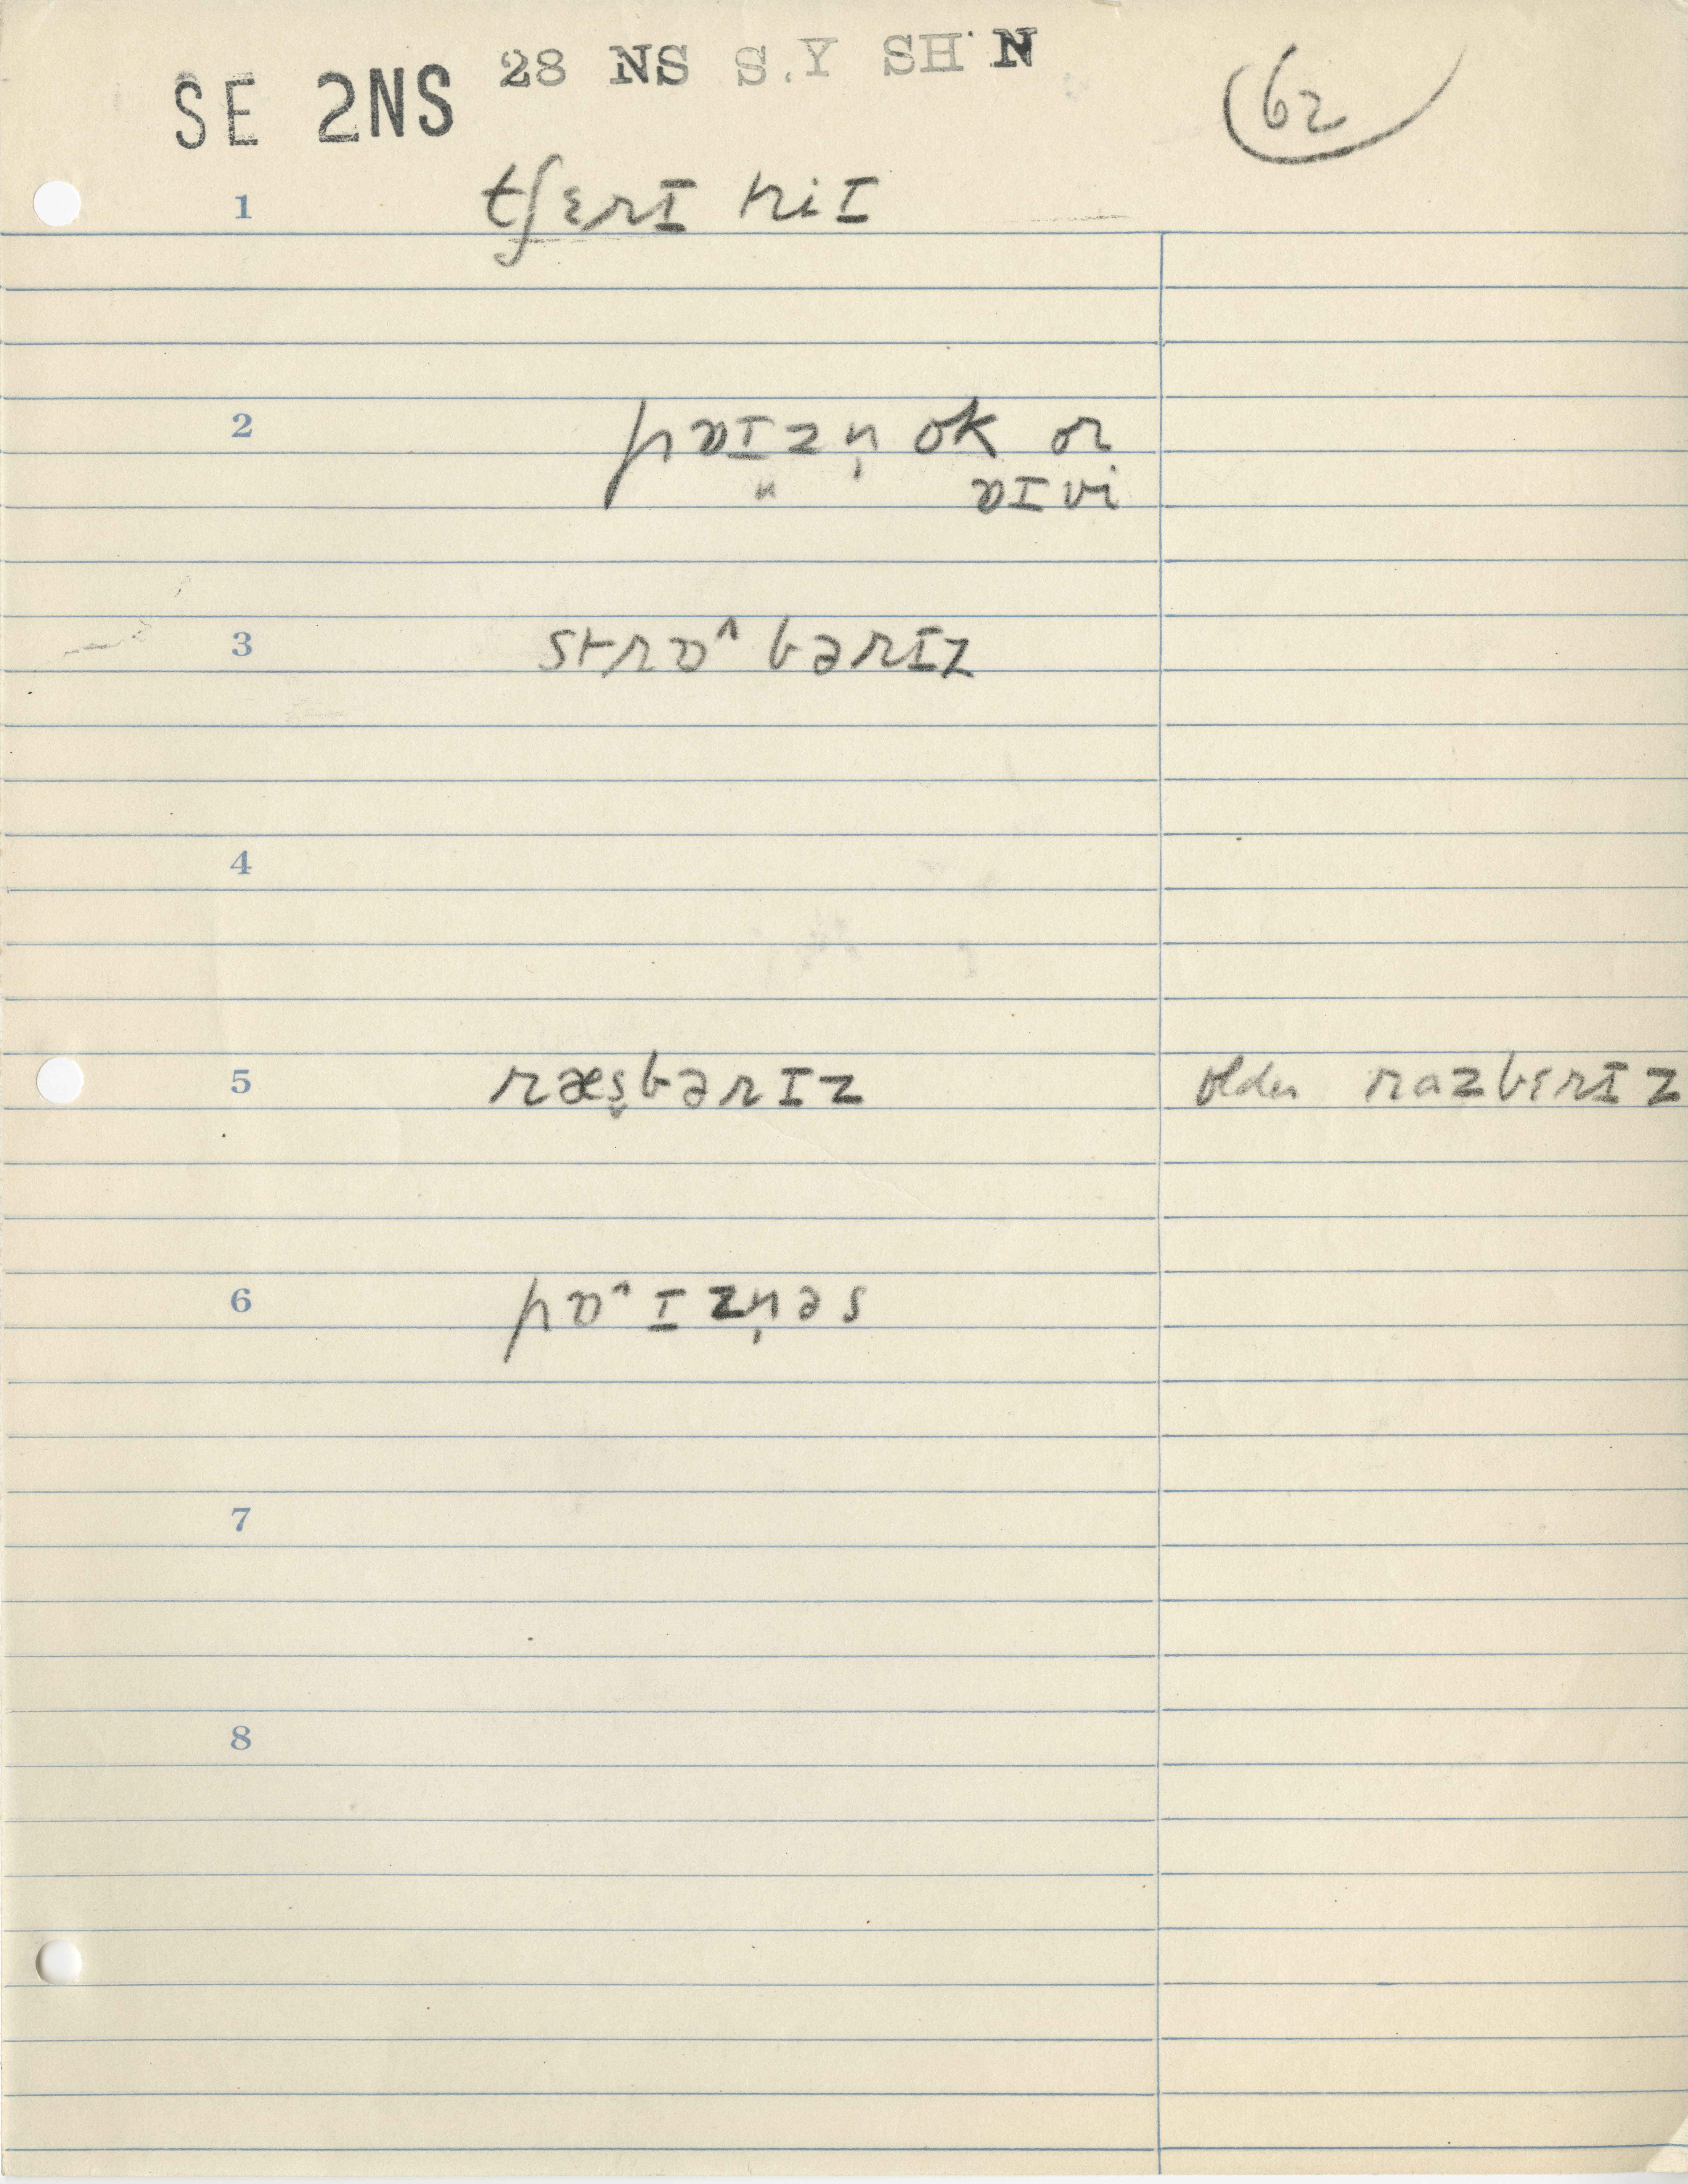 SE 2NS 28 NS S.Y SH N (62
1 tʃɛrɪ triɪ
2 pɒɪzn̩ ok or
" ɒɪvi
3 strɒ^bərɪz
4
5 ræs̬bərɪz older razbɛrɪz
6 pɒ^ɪzn̩əs
7
8